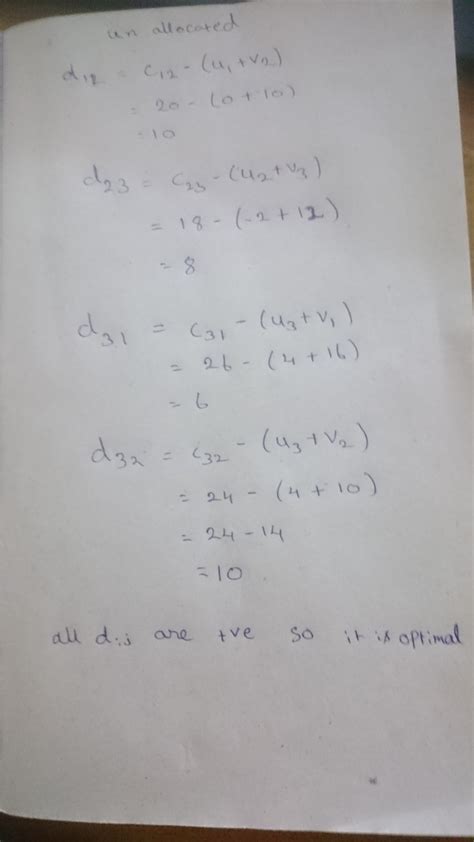 un allocated
d12 = c12 - (u1 + v2)
= 20 - (0 + 10)
= 10
d23 = c23 - (u2 + v3)
= 18 - (-2 + 12)
= 8
d31 = c31 - (u3 + v1)
= 26 - (4 + 16)
= 6
d32 = c32 - (u3 + v2)
= 24 - (4 + 10)
= 24 - 14
= 10
all dij are +ve so it is optimal